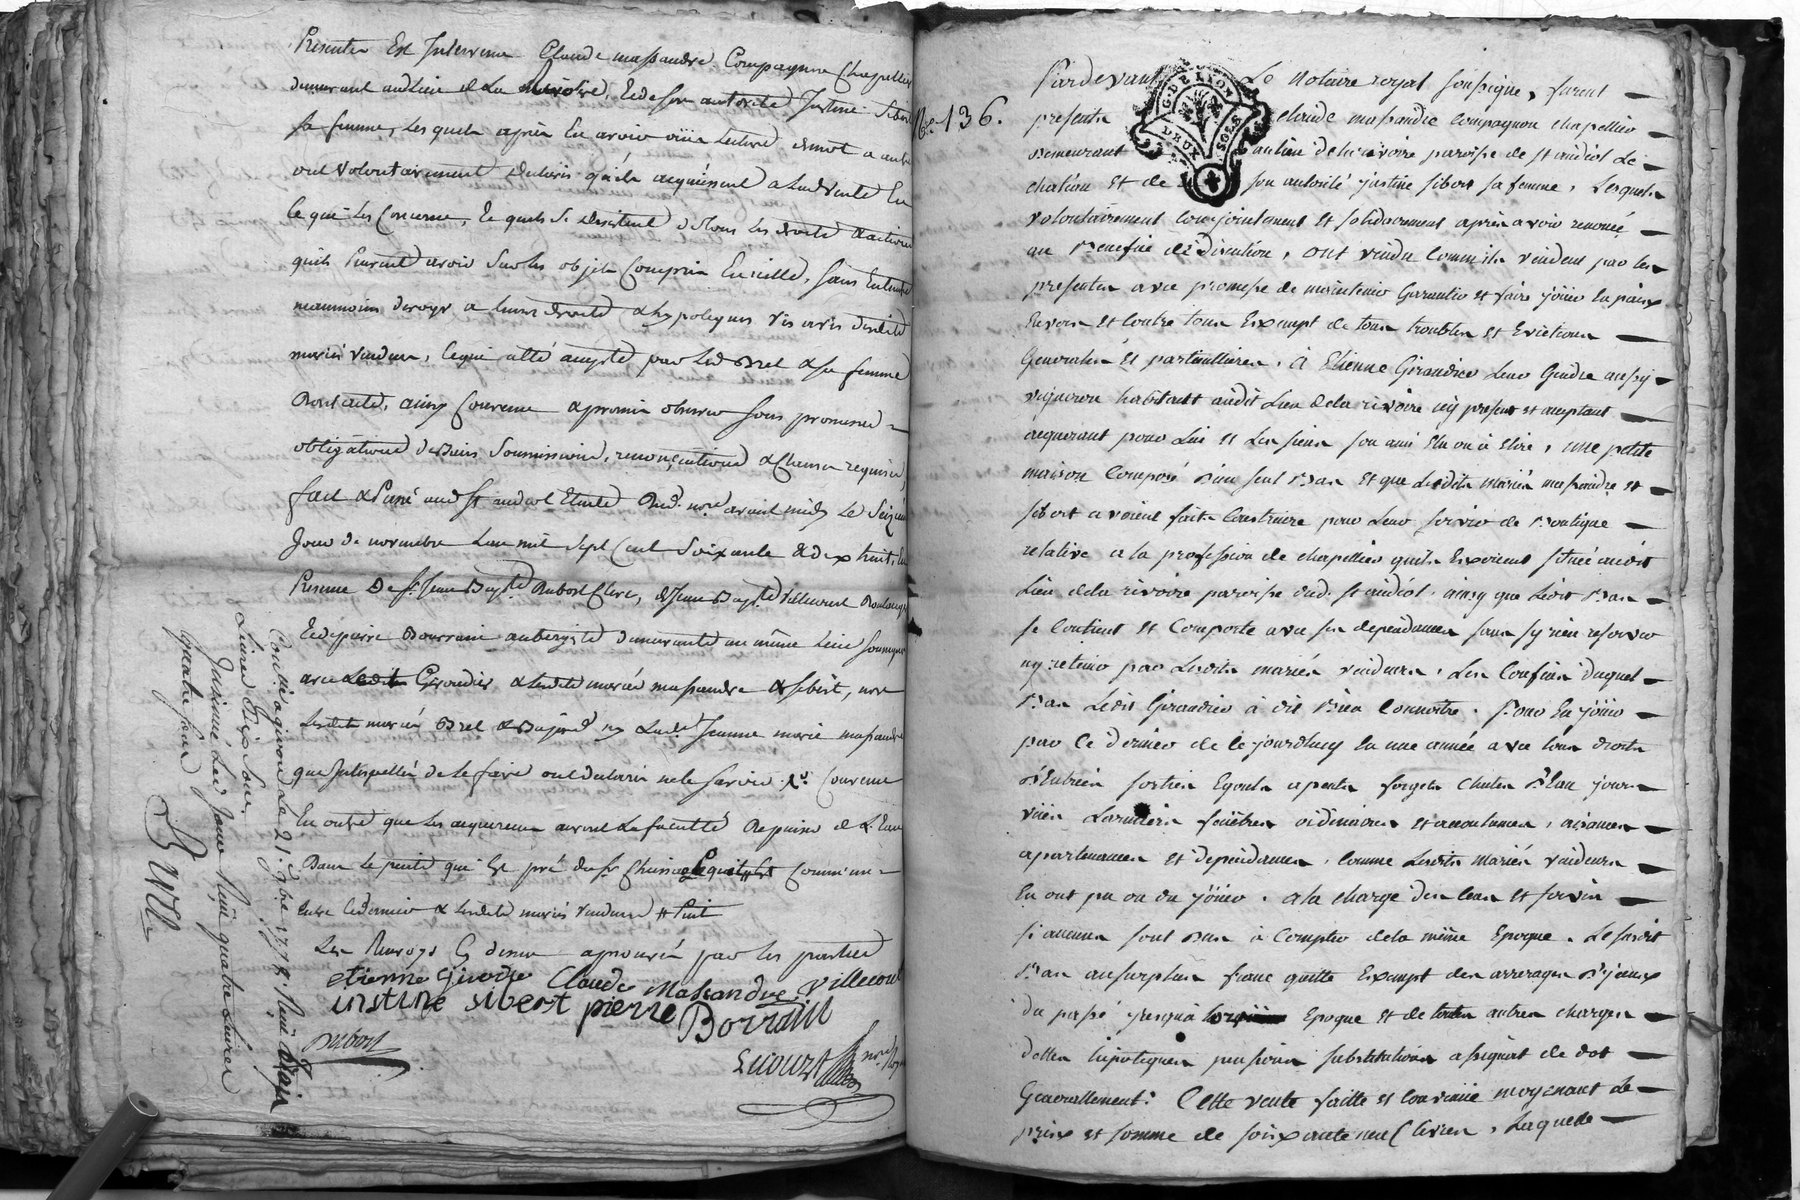 presentes Est Intervenu Claude massandre Compagnon Chapellier
demeurant audit Lieu de La Rivoire, Et de son autorité Justine Sibert
sa femme, Lesquels après En avoir oüi Lecture de mot a autre
ont Volontairement declaré qu'ils acquiescent a Ladte Vente En
Ce qui Les Concerne, Et quils Se desistent de tous Les droits & actions
quils peuvent avoir Sur les objets Compris En icelle, Sans Entendre
neanmoins deroger a leurs droits & hypoteques vis avis desdits
mariés Vendeurs, Ce qui a été accepté par Led. Brel & sa femme
, ainsy Convenu & promis observer sous promesses
obligations de Biens Soumissions, renonciations & Clauses requises,
fait & Passé aud. St andeol Etude Dud. nore avant midy Le Seizieme
Jour de novembre L'an mil Sept Cent Soixante & dix huit, En
Presence De Sr Jean Bapte Dubost Clerc, & Jean Bapte Villecourt Boulanger
Et de pierre Bourrain aubergiste demeurants au même Lieu soussignés
avec Ledit Giroudier & lesdits mariés massandre & sibert, non
Lesdits mariés Brel & ny Lade Jeanne marie massandre
que Interpellés de le faire ont declaré ne le Savoir. Convenu
En outre que Les acquereurs auront La faculté de puiser de L'Eau
Dans Le puits qui Est près du Sr Commun
Entre Ce dernier & lesdits mariés Vendeurs
Les Renvoys Cy dessus aprouvés par les parties
etienne girodie Claude Massandre Villecourt
iustine sibert pierre Borrain
Dubost
Lecourt nore Royal
Con.lé a givors Le 21. 9bre 1778. Reçu dix
Livres dix sous
Insinué Led. Jour Reçu quatre Livres
quatre sous
No. 136.
G. DE LYON
DEUX SOLS
Pardevant Le Notaire royal soussigné, furent
presents claude massandre compagnon chapellier
Demeurant au lieu de la rivoire paroisse de st andéol Le
chateau Et de son autorité justine sibert sa femme, Lesquels
volontairement Conjointement Et solidairement après avoir renoncé
au Benefice de division, ont vendu Comme ils vendent par les
presentes avec promesse de maintenir Garantir et faire jöüir En paix
Envers Et Contre tous Exempt de tous troubles Et Evictions
Generales Et particullieres, à Etienne Giraudier Leur Gendre aussy
vigneron habitant audit Lieu de la rivoire icy present et acceptant
acquerant pour Lui Et Les siens son ami Elu ou à Elire, une petite
maison Composé d'un seul Bas Et que Lesdits Mariés massandre et
sibert avoient faite Construire pour Leur servir de Boutique
relative a la profession de chapellier quils Exercent située audit
Lieu de la rivoire paroisse dud. st andéol, ainsy que Ledit Bas
se Contient Et Comporte avec ses dependances sans sy rien reserver
ny retenir par Lesdits mariés vendeurs, Les Confins duquel
Bas Ledit Giraudier a dit Bien Connoitre. Pour En jöüir
par Ce dernier de ce jourdhuy En une année avec tous droits
d'Entrées sorties Egouts apents forgets Chutes d'Eau jours
vües Larmiers fenêtres ordinaires Et accoutumés, aisances
apartenances Et dependances, Comme Lesdits Mariés vendeurs
En ont pu ou du jöüir, a la charge des Cens Et servis
si aucuns sont Dus à Compter de la même Epoque. Le susdit
Bas au surplus franc quitte Exempt des arrerages D'iceux
du passé jusqu'à Epoque Et de toutes autres charges
dettes hipoteques pensions substitutions assignat de dot
Generallement: Cette vente faitte Et Convenüe moyenant Le
prix et somme de soixante neuf Livres, Laquelle